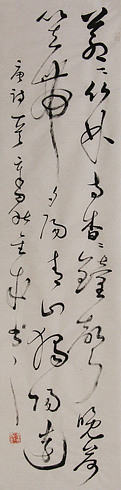 蒼々竹林寺杳々鐘聲晚荷
笠帶夕陽青山獨歸遠
唐詩